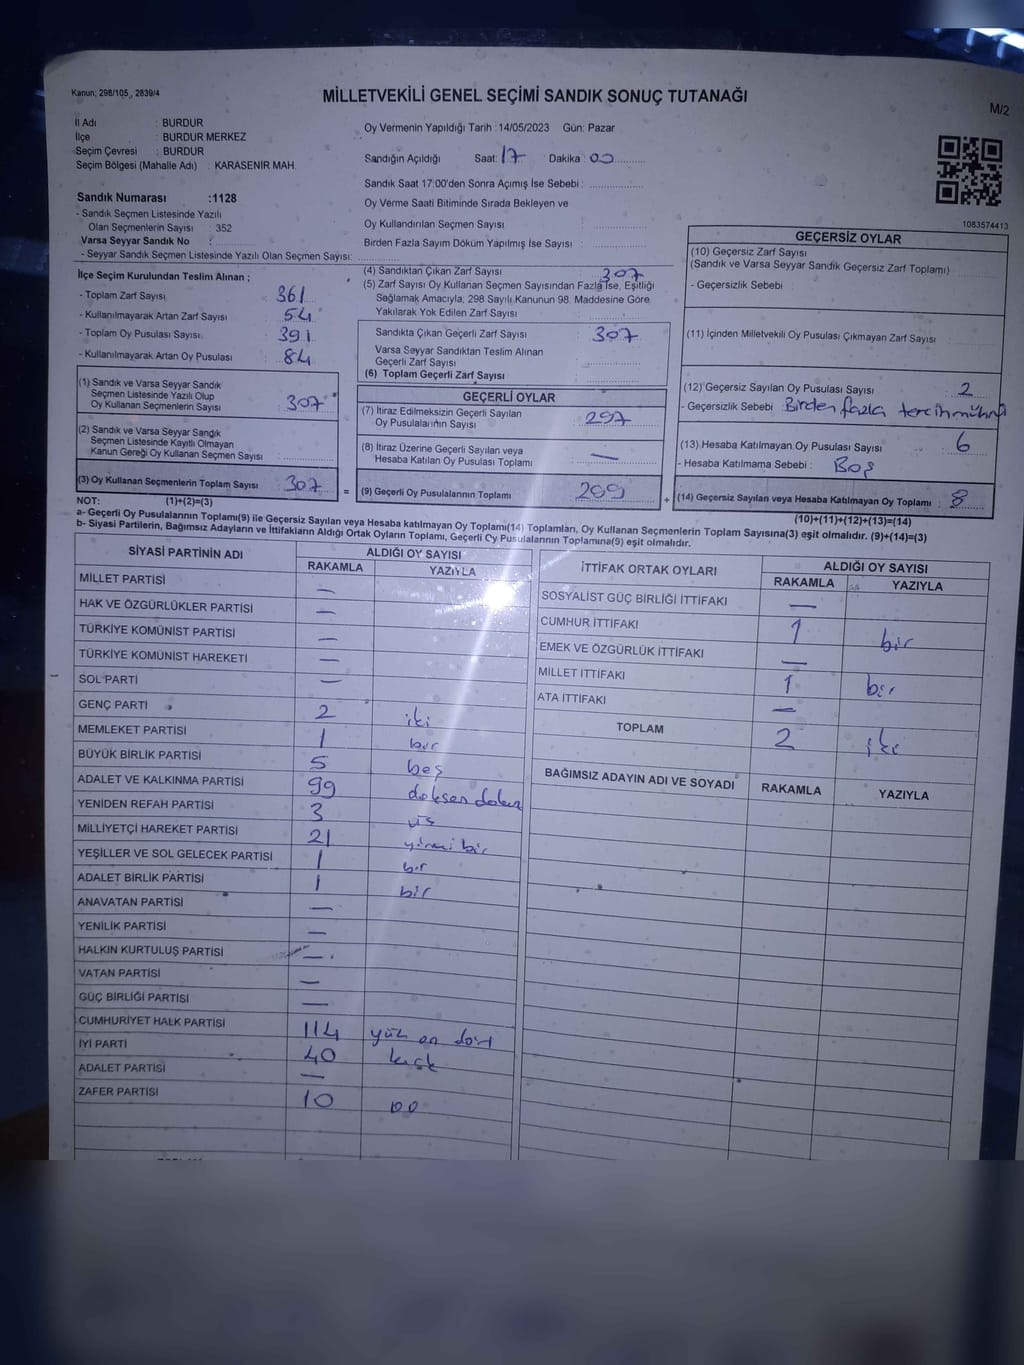 Kanun: 298/105, 2839/4
MİLLETVEKİLİ GENEL SEÇİMİ SANDIK SONUÇ TUTANAĞI
M/2
İl Adı : BURDUR
İlçe : BURDUR MERKEZ
Seçim Çevresi : BURDUR
Seçim Bölgesi (Mahalle Adı) : KARASENİR MAH.
Sandık Numarası :1128
- Sandık Seçmen Listesinde Yazılı
Olan Seçmenlerin Sayısı : 352
Varsa Seyyar Sandık No :
- Seyyar Sandık Seçmen Listesinde Yazılı Olan Seçmen Sayısı:
Oy Vermenin Yapıldığı Tarih :14/05/2023 Gün: Pazar
Sandığın Açıldığı Saat: 17 Dakika : 00
Sandık Saat 17:00'den Sonra Açımış İse Sebebi :
Oy Verme Saati Bitiminde Sırada Bekleyen ve
Oy Kullandırılan Seçmen Sayısı :
Birden Fazla Sayım Döküm Yapılmış İse Sayısı :
1083574413
İlçe Seçim Kurulundan Teslim Alınan ;
- Toplam Zarf Sayısı : 361
- Kullanılmayarak Artan Zarf Sayısı : 54
- Toplam Oy Pusulası Sayısı : 391
- Kullanılmayarak Artan Oy Pusulası : 84
(1) Sandık ve Varsa Seyyar Sandık
Seçmen Listesinde Yazılı Olup
Oy Kullanan Seçmenlerin Sayısı : 307
(2) Sandık ve Varsa Seyyar Sandık
Seçmen Listesinde Kayıtlı Olmayan
Kanun Gereği Oy Kullanan Seçmen Sayısı :
(3) Oy Kullanan Seçmenlerin Toplam Sayısı : 307
(4) Sandıktan Çıkan Zarf Sayısı : 307
(5) Zarf Sayısı Oy Kullanan Seçmen Sayısından Fazla İse, Eşitliği
Sağlamak Amacıyla, 298 Sayılı Kanunun 98. Maddesine Göre
Yakılarak Yok Edilen Zarf Sayısı :
Sandıkta Çıkan Geçerli Zarf Sayısı : 307
Varsa Seyyar Sandıktan Teslim Alınan
Geçerli Zarf Sayısı :
(6) Toplam Geçerli Zarf Sayısı :
GEÇERLİ OYLAR
(7) İtiraz Edilmeksizin Geçerli Sayılan
Oy Pusulalarının Sayısı : 297
(8) İtiraz Üzerine Geçerli Sayılan veya
Hesaba Katılan Oy Pusulası Toplamı : —
=
(9) Geçerli Oy Pusulalarının Toplamı :
+
GEÇERSİZ OYLAR
(10) Geçersiz Zarf Sayısı
(Sandık ve Varsa Seyyar Sandik Geçersiz Zarf Toplamı)
- Geçersizlik Sebebi :
(11) İçinden Milletvekili Oy Pusulası Çıkmayan Zarf Sayısı :
(12) Geçersiz Sayılan Oy Pusulası Sayısı : 2
- Geçersizlik Sebebi : Birden fazla tercih mühürü
(13) Hesaba Katılmayan Oy Pusulası Sayısı : 6
- Hesaba Katılmama Sebebi : Boş
(14) Geçersiz Sayılan veya Hesaba Katılmayan Oy Toplamı : 8
NOT: (1)+(2)=(3)
(10)+(11)+(12)+(13)=(14)
a- Geçerli Oy Pusulalarının Toplamı(9) ile Geçersiz Sayılan veya Hesaba katılmayan Oy Toplamı(14) Toplamları, Oy Kullanan Seçmenlerin Toplam Sayısına(3) eşit olmalıdır. (9)+(14)=(3)
b- Siyasi Partilerin, Bağımsız Adayların ve İttifakların Aldığı Ortak Oyların Toplamı, Geçerli Oy Pusulalarının Toplamına(9) eşit olmalıdır.
SİYASİ PARTİNİN ADI
ALDIĞI OY SAYISI
RAKAMLA YAZIYLA
MİLLET PARTİSİ —
HAK VE ÖZGÜRLÜKLER PARTİSİ —
TÜRKİYE KOMÜNİST PARTİSİ —
TÜRKİYE KOMÜNİST HAREKETİ —
SOL PARTİ —
GENÇ PARTİ 2 iki
MEMLEKET PARTİSİ 1 bir
BÜYÜK BİRLİK PARTİSİ 5 beş
ADALET VE KALKINMA PARTİSİ 99 doksan dokuz
YENİDEN REFAH PARTİSİ 3 üç
MİLLİYETÇİ HAREKET PARTİSİ 21 yirmi bir
YEŞİLLER VE SOL GELECEK PARTİSİ 1 bir
ADALET BİRLİK PARTİSİ 1 bir
ANAVATAN PARTİSİ —
YENİLİK PARTİSİ —
HALKIN KURTULUŞ PARTİSİ —
VATAN PARTİSİ —
GÜÇ BİRLİĞİ PARTİSİ —
CUMHURİYET HALK PARTİSİ 114 yüz on dört
İYİ PARTİ 40 kırk
ADALET PARTİSİ —
ZAFER PARTİSİ 10 on
İTTİFAK ORTAK OYLARI
ALDIĞI OY SAYISI
RAKAMLA YAZIYLA
SOSYALİST GÜÇ BİRLİĞİ İTTİFAKI —
CUMHUR İTTİFAKI 1 bir
EMEK VE ÖZGÜRLÜK İTTİFAKI —
MİLLET İTTİFAKI 1 bir
ATA İTTİFAKI —
TOPLAM 2 iki
BAĞIMSIZ ADAYIN ADI VE SOYADI RAKAMLA YAZIYLA